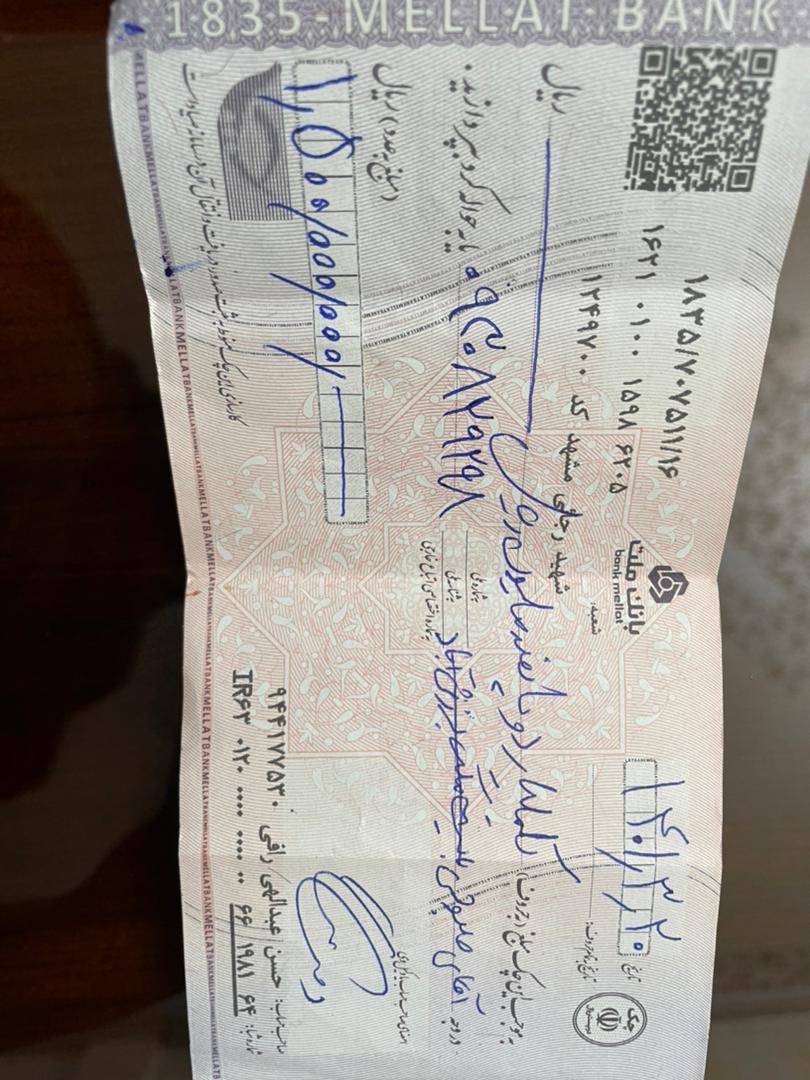 ۱۸۳۵/۷۰۷۵۱۱/۱۶
۱۶۲۱ ۰۱۰۰ ۱۵۹۸ ۶۲۰۵
بانک ملت
bank mellat
شعبه:
شهید رجائی مشهد کد ۱۲۴۹۷۰۰
چک
تاریخ
تاریخ به نام حروف:
به موجب این چک مبلغ (بحروف) یکمیلیارد و پانصد میلیون ریال ریال
در وجه آقای
به شماره ملی
به شناسه ملی
به شماره اختصاصی اتباع خارجی
یا به حواله کرد بپردازید.
(مبلغ به عدد) ریال
۱,۵۰۰/۰۰۰/۰۰۰/
امضای صاحب حساب یا وکیل وی
صاحب حساب: حسن عبدالهی رافی ۹۴۴۱۷۷۵۳۰
شماره شبا: IR۶۳ ۰۱۲۰ ۰۰۰۰ ۰۰۰۰ ۰۰ ۶۶ ۱۹۸۱ ۶۴
کارسازی این چک منوط به ثبت صدور، دریافت و انتقال آن در سامانه صیاد است
1835-MELLAT BANK
MELLATBANKMELLATBANKMELLATBANK